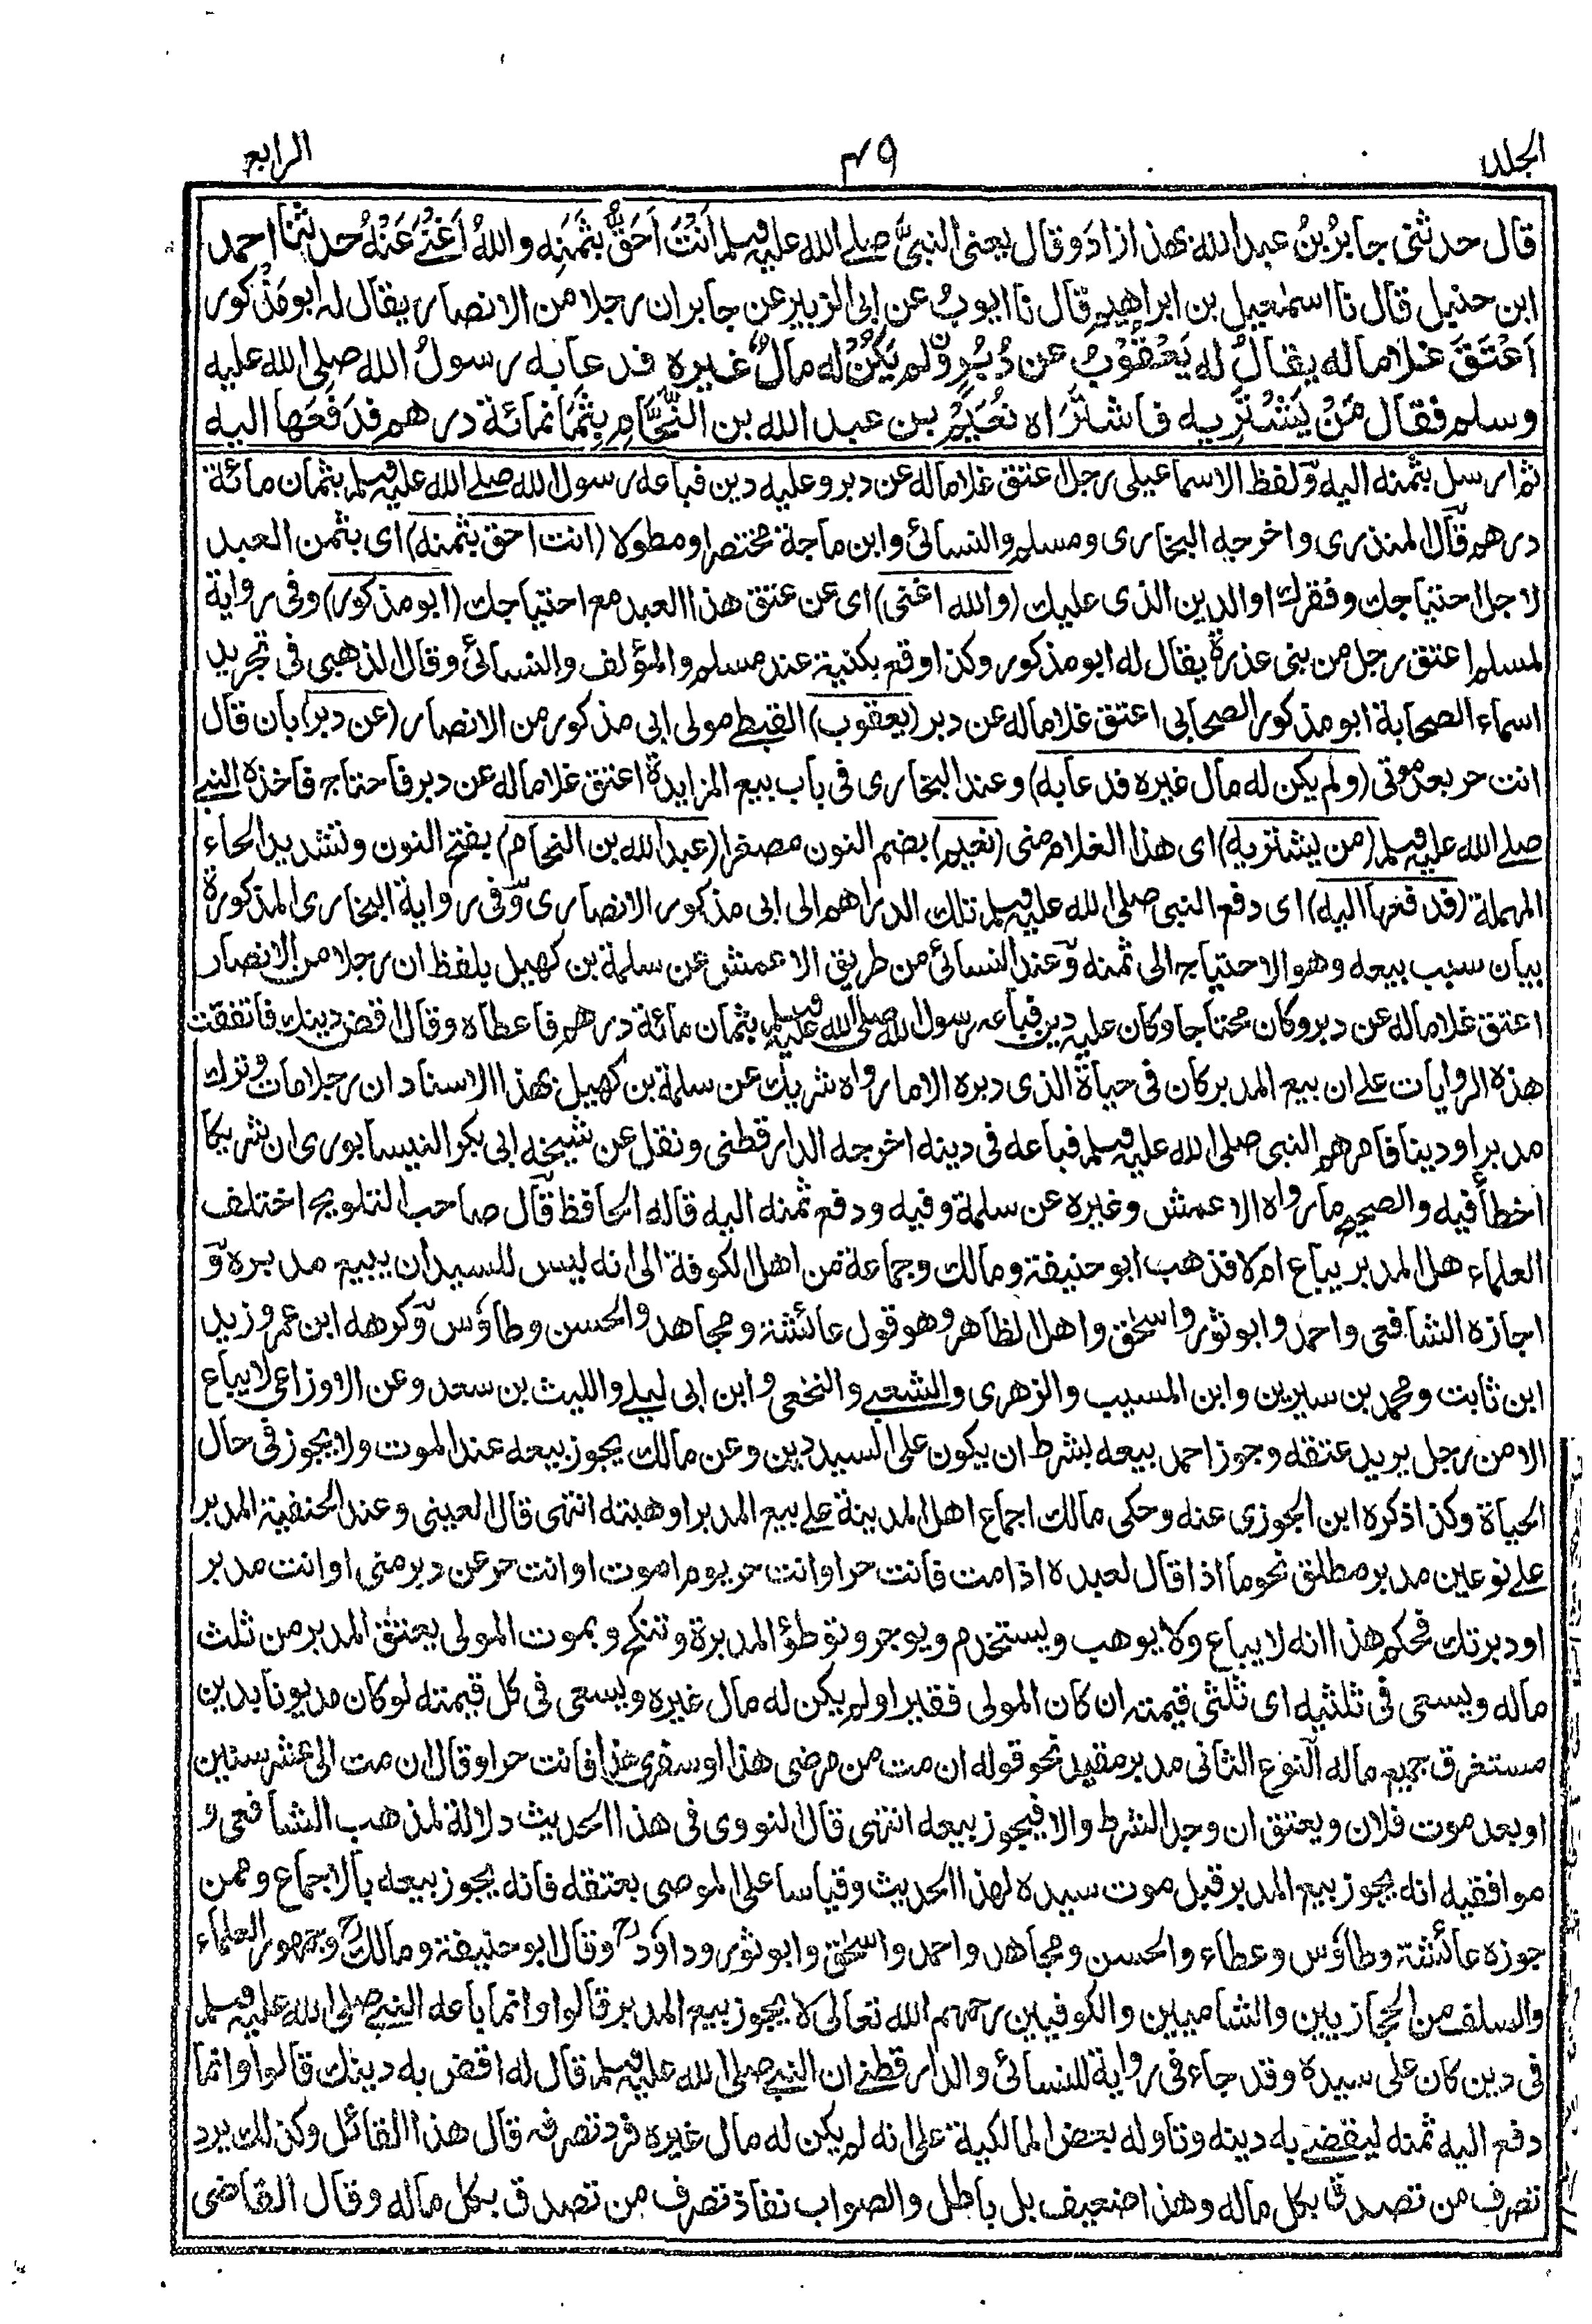 الجلد ٤٩ الرابع
قال حدثنى جابرُ بنُ عبدالله بهذا زادَ وقال يعنى النبىَّ صلے الله عليہ وسلم اَنْتَ اَحَقُّ بِثَمَنِه واللهُ اَغْنٰے عَنْهُ حدثنا احمد
ابن حنبل قال نا اسمٰعيل بن ابراهيم قال نا ايوبُ عن ابى الزبير عن جابر ان رجلا من الانصار يقال لہ ابو مَذْكور
اَعْتَقَ غلاما له يقالُ له يَعْقُوْبُ عن دُبُرٍ ولم يَكُنْ له مالٌ غيره فدعا به رسولُ الله صلى الله عليه
وسلم فقال مَنْ يَشْتَرِيه فاشتَرَاه نُعَيْمُ بن عبدالله بن النَّحَّامِ بِثَمَانمائة درهم فدَفَعَها اليه
ثم ارسل بثمنه اليه ولفظ الاسماعيلى رجل اعتق غلاما له عن دبر وعليه دين فباعه رسول الله صلے الله عليہ وسلم بثمان مائة
درهم قال المنذرى واخرجه البخارى ومسلم والنسائى وابن ماجة مختصرا ومطولا (انت احق بثمنه) اى بثمن العبد
لاجل احتياجك وفقرك او الدين الذى عليك (والله اغنى) اى عن عتق هذا العبد مع احتياجك (ابو مذكور) وفى رواية
لمسلم اعتق رجل من بنى عذرة يقال له ابو مذكور وكذا وقع بكنية عند مسلم والمؤلف والنسائى وقال الذهبى فى تجريد
اسماء الصحابة ابو مذكور الصحابى اعتق غلاما له عن دبر (يعقوب) القبطے مولى ابى مذكور من الانصار (عن دبر) بان قال
انت حر بعد موتى (ولم يكن له مال غيره فدعا به) وعند البخارى فى باب بيع المزايدة اعتق غلاما له عن دبر فاحتاج فاخذه النبے
صلے الله عليہ وسلم (من يشتريه) اى هذا الغلام منى (نعيم) بضم النون مصغرا (عبدالله بن النحام) بفتح النون وتشديد الحاء
المهملة (فدفعها اليه) اى دفع النبى صلى الله عليہ وسلم تلك الدراهم الى ابى مذكور الانصارى وفى رواية البخارى المذكورة
بيان سبب بيعه وهو الاحتياج الى ثمنه وعند النسائى من طريق الاعمش عن سلمة بن كهيل بلفظ ان رجلا من الانصار
اعتق غلاما له عن دبر وكان محتاجا وكان عليہ دين فباعہ رسول الله صلى الله عليہ وسلم بثمان مائة درهم فاعطاه وقال اقض دينك فاتفقت
هذه الروايات علے ان بيع المدبر كان فى حياة الذى دبره الا ما رواه شريك عن سلمة بن كهيل بهذا الاسناد ان رجلا مات وترك
مدبرا ودينا فامرهم النبى صلى الله عليہ وسلم فباعه فى دينه اخرجه الدارقطنى ونقل عن شيخه ابى بكر النيسابورى ان شريكا
اخطأ فيه والصحيح ما رواه الاعمش وغيره عن سلمة وفيه ودفع ثمنه اليه قاله الحافظ قال صاحب التلويح اختلف
العلماء هل المدبر يباع ام لا فذهب ابو حنيفة ومالك وجماعة من اهل الكوفة الى انه ليس للسيد ان يبيع مدبره و
اجازه الشافعى واحمد وابو ثور واسحٰق واهل الظاهر وهو قول عائشة ومجاهد والحسن وطاؤس وكرهه ابن عمر وزيد
ابن ثابت ومحمد بن سيرين وابن المسيب والزهرى والشعبے والنخعى وابن ابى ليلے والليث بن سعد وعن الاوزاعى لا يباع
الا من رجل يريد عتقه وجوز احمد بيعه بشرط ان يكون على السيد دين وعن مالك يجوز بيعه عند الموت ولا يجوز فى حال
الحياة وكذا ذكره ابن الجوزى عنه وحكى مالك اجماع اهل المدينة علے بيع المدبر او هبته انتهى قال العينى وعند الحنفية المدبر
علے نوعين مدبر مطلق نحو ما اذا قال لعبده اذا مت فانت حر او انت حر يوم اموت او انت حر عن دبر منى او انت مدبر
او دبرتك فحكم هذا انه لا يباع ولا يوهب ويستخدم ويوجر وتوطؤ المدبرة وتنكح وبموت المولى يعتق المدبر من ثلث
ماله ويسعى فى ثلثيه اى ثلثى قيمتہ ان كان المولى فقيرا ولم يكن له مال غيره ويسعى فى كل قيمته لو كان مديونا بدين
مستغرق جميع ماله النوع الثانى مدبر مقيد نحو قوله ان مت من مرضى هذا او سفرى هذا فانت حر او قال ان مت الى عشر سنين
او بعد موت فلان ويعتق ان وجد الشرط والا فيجوز بيعه انتهى قال النووى فى هذا الحديث دلالة لمذهب الشافعى و
موافقيه انه يجوز بيع المدبر قبل موت سيده لهذا الحديث وقياسا على الموصى بعتقه فانه يجوز بيعه بالاجماع وممن
جوزه عائشة وطاؤس وعطاء والحسن ومجاهد واحمد واسحٰق وابو ثور وداؤد رح وقال ابو حنيفة ومالك رح وجمهور العلماء
والسلف من الحجازيين والشاميين والكوفيين رحمهم الله تعالى لا يجوز بيع المدبر قالوا وانما باعه النبے صلى الله عليہ وسلم
فى دين كان على سيده وقد جاء فى رواية للنسائى والدارقطنے ان النبے صلى الله عليہ وسلم قال له اقض به دينك قالوا وانما
دفع اليه ثمنه ليقضے به دينه وتاوله بعض المالكية على انه لم يكن له مال غيره فرد تصرفہ قال هذا القائل وكذلك يرد
تصرف من تصدق بكل ماله وهذا ضعيف بل باطل والصواب نفاذ تصرف من تصدق بكل ماله وقال القاضى